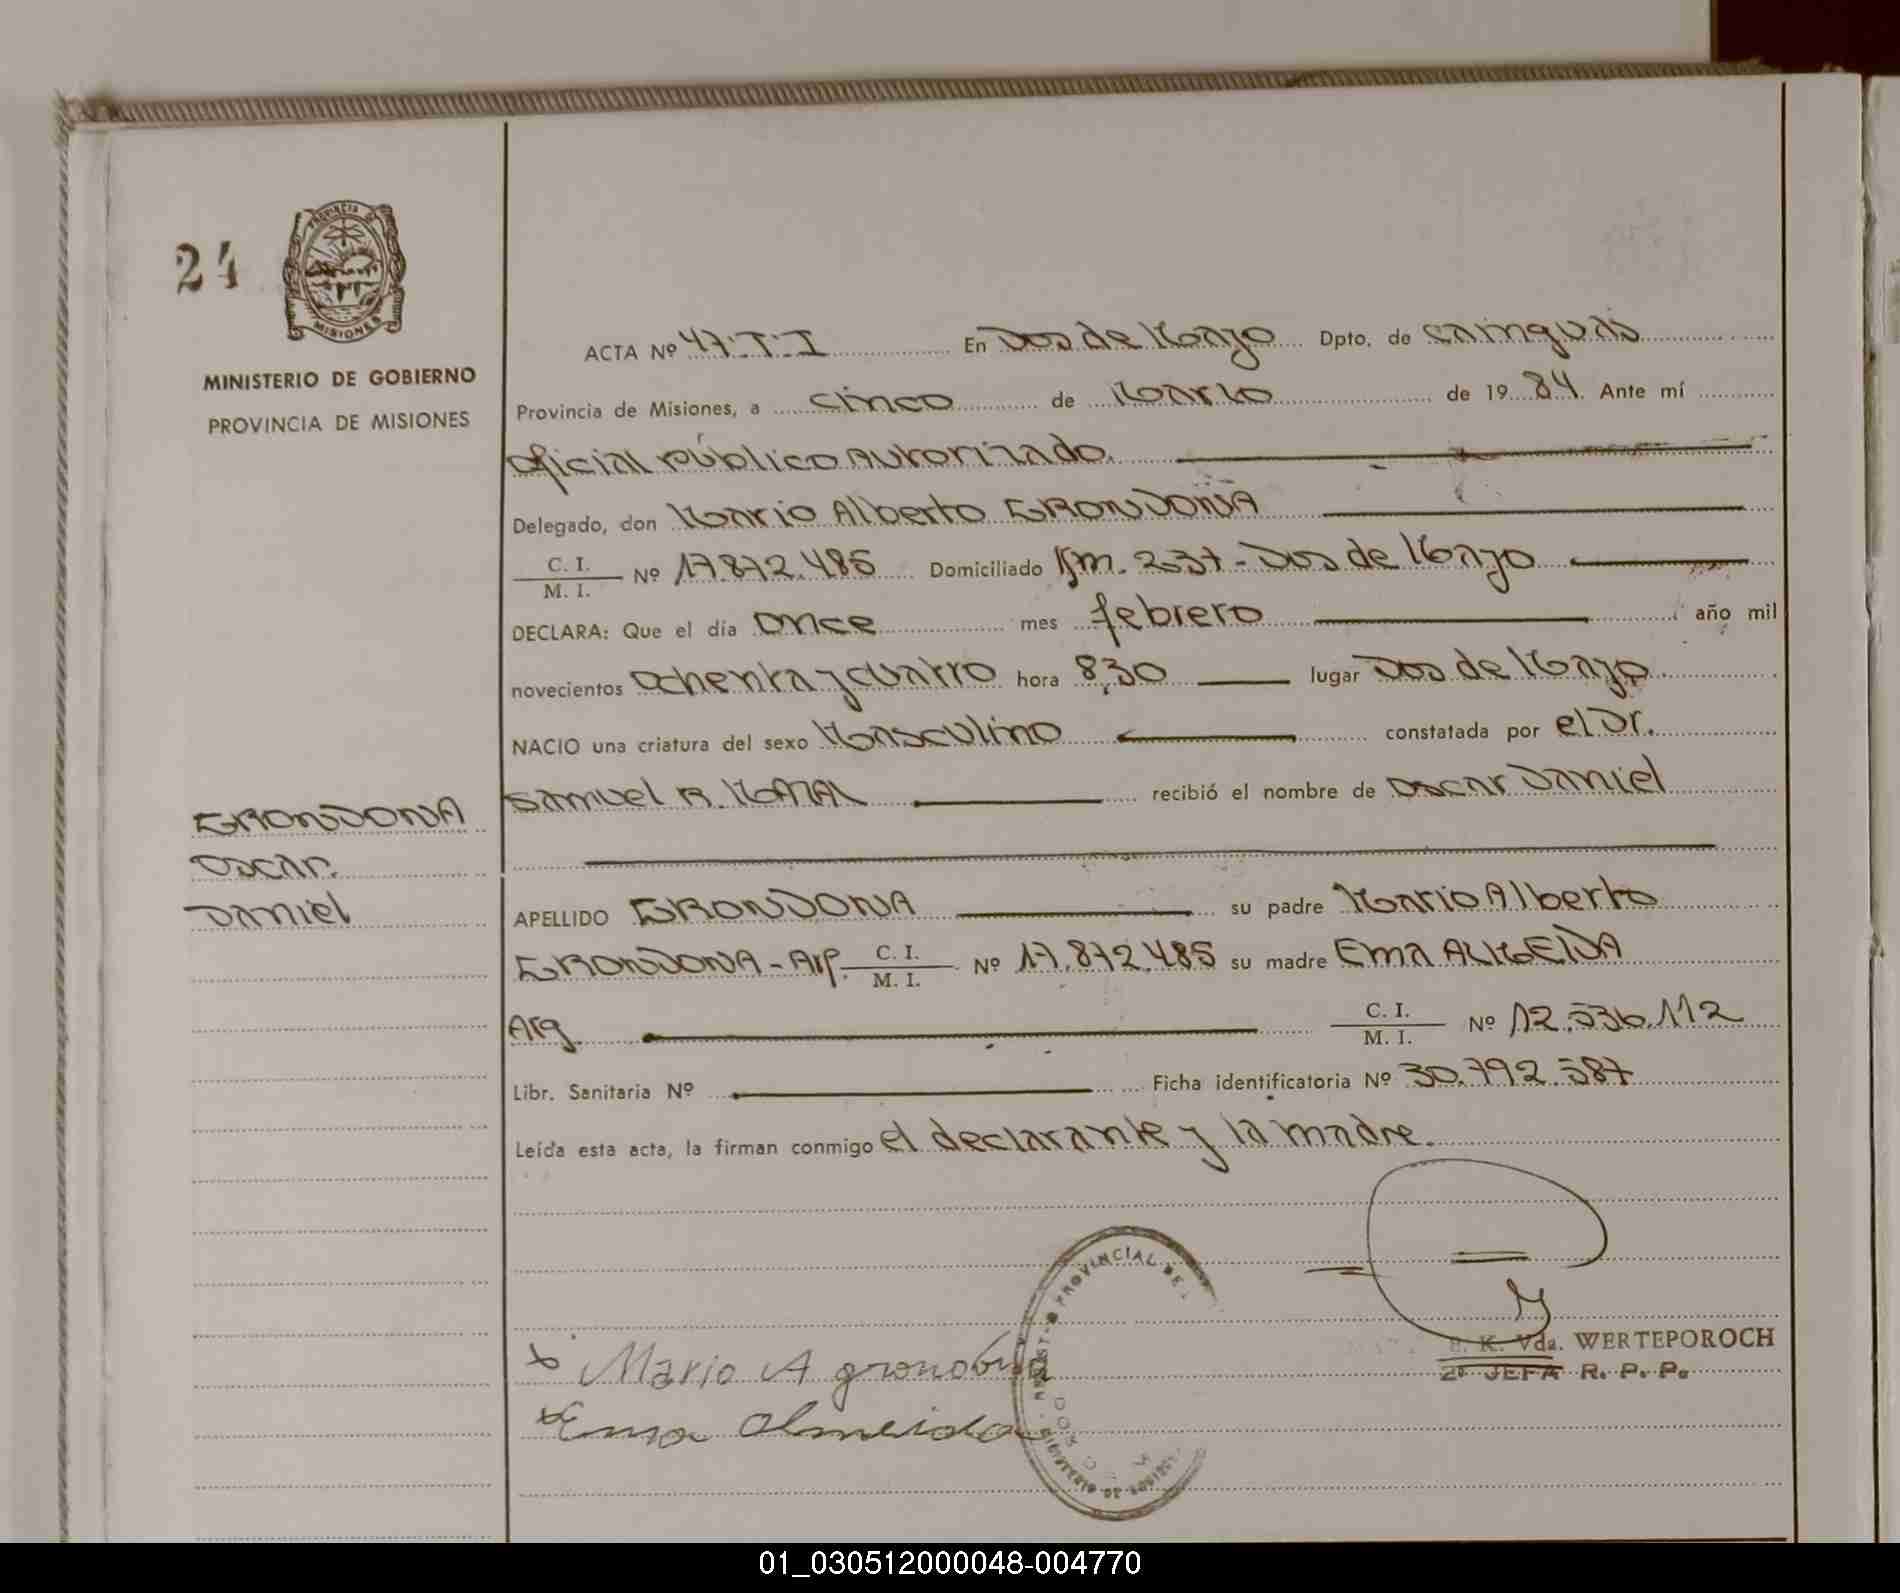 24
PROVINCIA DE
MISIONES
MINISTERIO DE GOBIERNO
PROVINCIA DE MISIONES
ACTA Nº 47-T-I En Dos de Mayo Dpto. de Cainguás
Provincia de Misiones, a cinco de Marzo de 1984. Ante mí
Oficial Público Autorizado.
Delegado, don Mario Alberto GRONDONA
C. I. / M. I. Nº 17.872.485 Domiciliado Km. 237 - Dos de Mayo
DECLARA: Que el día once mes febrero año mil
novecientos ochenta y cuatro hora 8,30 lugar Dos de Mayo
NACIO una criatura del sexo Masculino constatada por el Dr.
Samuel R. recibió el nombre de Oscar Daniel
GRONDONA
Oscar
Daniel
APELLIDO GRONDONA su padre Mario Alberto
GRONDONA - Arg. C. I. / M. I. Nº 17.872.485 su madre Ema ALMEIDA
Arg. C. I. / M. I. Nº 12.536.112
Libr. Sanitaria Nº Ficha identificatoria Nº 30.792.587
Leída esta acta, la firman conmigo el declarante y la madre.
PROVINCIAL DE
x Mario A grondona
x Ema Almeida
K. Vda. WERTEPOROCH
2ª JEFA R. P. P.
01_030512000048-004770